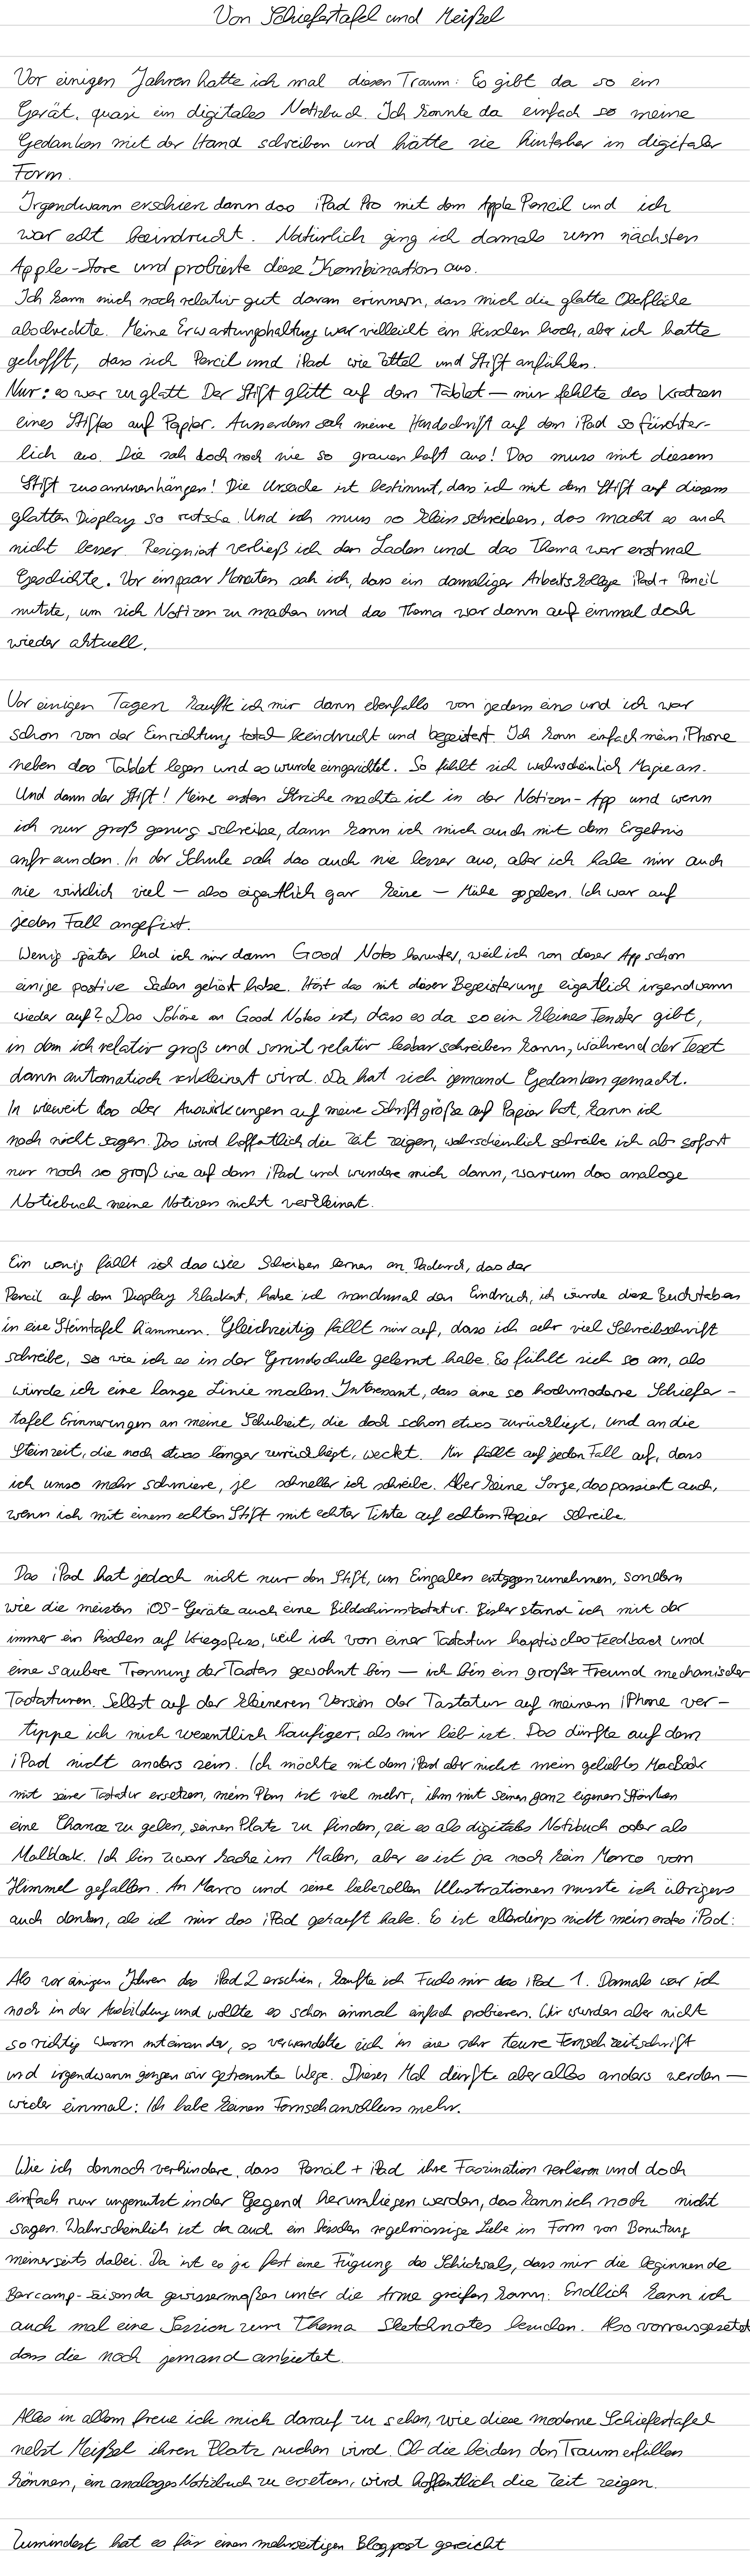 Von Schiefertafel und Meißel
Vor einigen Jahren hatte ich mal diesen Traum: Es gibt da so ein
Gerät, quasi ein digitales Notizbuch. Ich könnte da einfach so meine
Gedanken mit der Hand schreiben und hätte sie hinterher in digitaler
Form.
Irgendwann erschien dann das iPad Pro mit dem Apple Pencil und ich
war echt beeindruckt. Natürlich ging ich damals zum nächsten
Apple-Store und probierte diese Kombination aus.
Ich kann mich noch relativ gut daran erinnern, dass mich die glatte Oberfläche
abschreckte. Meine Erwartungshaltung war vielleicht ein bisschen hoch, aber ich hatte
gehofft, dass sich Pencil und iPad wie Zettel und Stift anfühlen.
Nur: es war zu glatt Der Stift glitt auf dem Tablet — mir fehlte das Kratzen
eines Stiftes auf Papier. Ausserdem sah meine Handschrift auf dem iPad so fürchter-
lich aus. Die sah doch noch nie so grauenhaft aus! Das muss mit diesem
Stift zusammenhängen! Die Ursache ist bestimmt, dass ich mit dem Stift auf diesem
glatten Display so rutsche. Und ich muss so klein schreiben, das macht es auch
nicht besser. Resigniert verließ ich den Laden und das Thema war erstmal
Geschichte. Vor ein paar Monaten sah ich, dass ein damaliger Arbeitskollege iPad + Pencil
nutzte, um sich Notizen zu machen und das Thema war dann auf einmal doch
wieder aktuell.
Vor einigen Tagen kaufte ich mir dann ebenfalls von jedem eins und ich war
schon von der Einrichtung total beeindruckt und begeistert. Ich kann einfach mein iPhone
neben das Tablet legen und es wurde eingerichtet. So fühlt sich wahrscheinlich Magie an.
Und dann der Stift! Meine ersten Striche machte ich in der Notizen-App und wenn
ich nur groß genug schreibe, dann kann ich mich auch mit dem Ergebnis
anfreunden. In der Schule sah das auch nie besser aus, aber ich habe mir auch
nie wirklich viel — also eigentlich gar keine — Mühe gegeben. Ich war auf
jeden Fall angefixt.
Wenig später lud ich mir dann Good Notes herunter, weil ich von dieser App schon
einige postive Sachen gehört habe. Hört das mit dieser Begeisterung eigentlich irgendwann
wieder auf? Das Schöne an Good Notes ist, dass es da so ein kleines Fenster gibt,
in dem ich relativ groß und somit relativ lesbar schreiben kann, während der Text
dann automatisch verkleinert wird. Da hat sich jemand Gedanken gemacht.
In wieweit das aber Auswirkungen auf meine Schriftgröße auf Papier hat, kann ich
noch nicht sagen. Das wird hoffentlich die Zeit zeigen, wahrscheinlich schreibe ich ab sofort
nur noch so groß wie auf dem iPad und wundere mich dann, warum das analoge
Notizbuch meine Notizen nicht verkleinert.
Ein wenig fühlt sich das wie Schreiben lernen an. Dadurch, das der
Pencil auf dem Display klackert, habe ich manchmal den Eindruck, ich würde diese Buchstaben
in eine Steintafel hämmern. Gleichzeitig fällt mir auf, dass ich sehr viel Schreibschrift
schreibe, so wie ich es in der Grundschule gelernt habe. Es fühlt sich so an, als
würde ich eine lange Linie malen. Interessant, dass eine so hochmoderne Schiefer-
tafel Erinnerungen an meine Schulzeit, die doch schon etwas zurückliegt, und an die
Steinzeit, die noch etwas länger zurückliegt, weckt. Mir fällt auf jeden Fall auf, dass
ich umso mehr schmiere, je schneller ich schreibe. Aber keine Sorge, das passiert auch,
wenn ich mit einem echten Stift mit echter Tinte auf echtem Papier schreibe.
Das iPad hat jedoch nicht nur den Stift, um Eingaben entgegenzunehmen, sondern
wie die meisten iOS-Geräte auch eine Bildschirmtastatur. Bisher stand ich mit der
immer ein bisschen auf Kriegsfuss, weil ich von einer Tastatur haptisches Feedback und
eine saubere Trennung der Tasten gewohnt bin — ich bin ein großer Freund mechanischer
Tastaturen. Selbst auf der kleineren Version der Tastatur auf meinem iPhone ver-
tippe ich mich wesentlich häufiger, als mir lieb ist. Das dürfte auf dem
iPad nicht anders sein. Ich möchte mit dem iPad aber nicht mein geliebtes MacBook
mit seiner Tastatur ersetzen, mein Plan ist viel mehr, ihm mit seinen ganz eigenen Stärken
eine Chance zu geben, seinen Platz zu finden, sei es als digitales Notizbuch oder als
Malblock. Ich bin zwar Kacke im Malen, aber es ist ja noch kein Marco vom
Himmel gefallen. An Marco und seine liebevollen Illustrationen musste ich übrigens
auch denken, als ich mir das iPad gekauft habe. Es ist allerdings nicht mein erstes iPad:
Als vor einigen Jahren das iPad 2 erschien, kaufte ich Fuchs mir das iPad 1. Damals war ich
noch in der Ausbildung und wollte es schon einmal einfach probieren. Wir wurden aber nicht
so richtig warm miteinander, es verwandelte sich in eine sehr teure Fernsehzeitschrift
und irgendwann gingen wir getrennte Wege. Dieses Mal dürfte aber alles anders werden —
wieder einmal: Ich habe keinen Fernsehanschluss mehr.
Wie ich dennoch verhindere, dass Pencil + iPad ihre Faszination verlieren und doch
einfach nur ungenutzt in der Gegend herumliegen werden, das kann ich noch nicht
sagen. Wahrscheinlich ist da auch ein bisschen regelmässige Liebe in Form von Benutzung
meinerseits dabei. Da ist es ja fast eine Fügung des Schicksals, dass mir die beginnende
Barcamp-Saison da gewissermaßen unter die Arme greifen kann: Endlich kann ich
auch mal eine Session zum Thema Sketchnotes besuchen. Also vorrausgesetzt
dass die noch jemand anbietet.
Alles in allem freue ich mich darauf zu sehen, wie diese moderne Schiefertafel
nebst Meißel ihren Platz suchen wird. Ob die beiden den Traum erfüllen
können, ein analoges Notizbuch zu ersetzen, wird hoffentlich die Zeit zeigen.
Zumindest hat es für einen mehrseitigen Blogpost gereicht